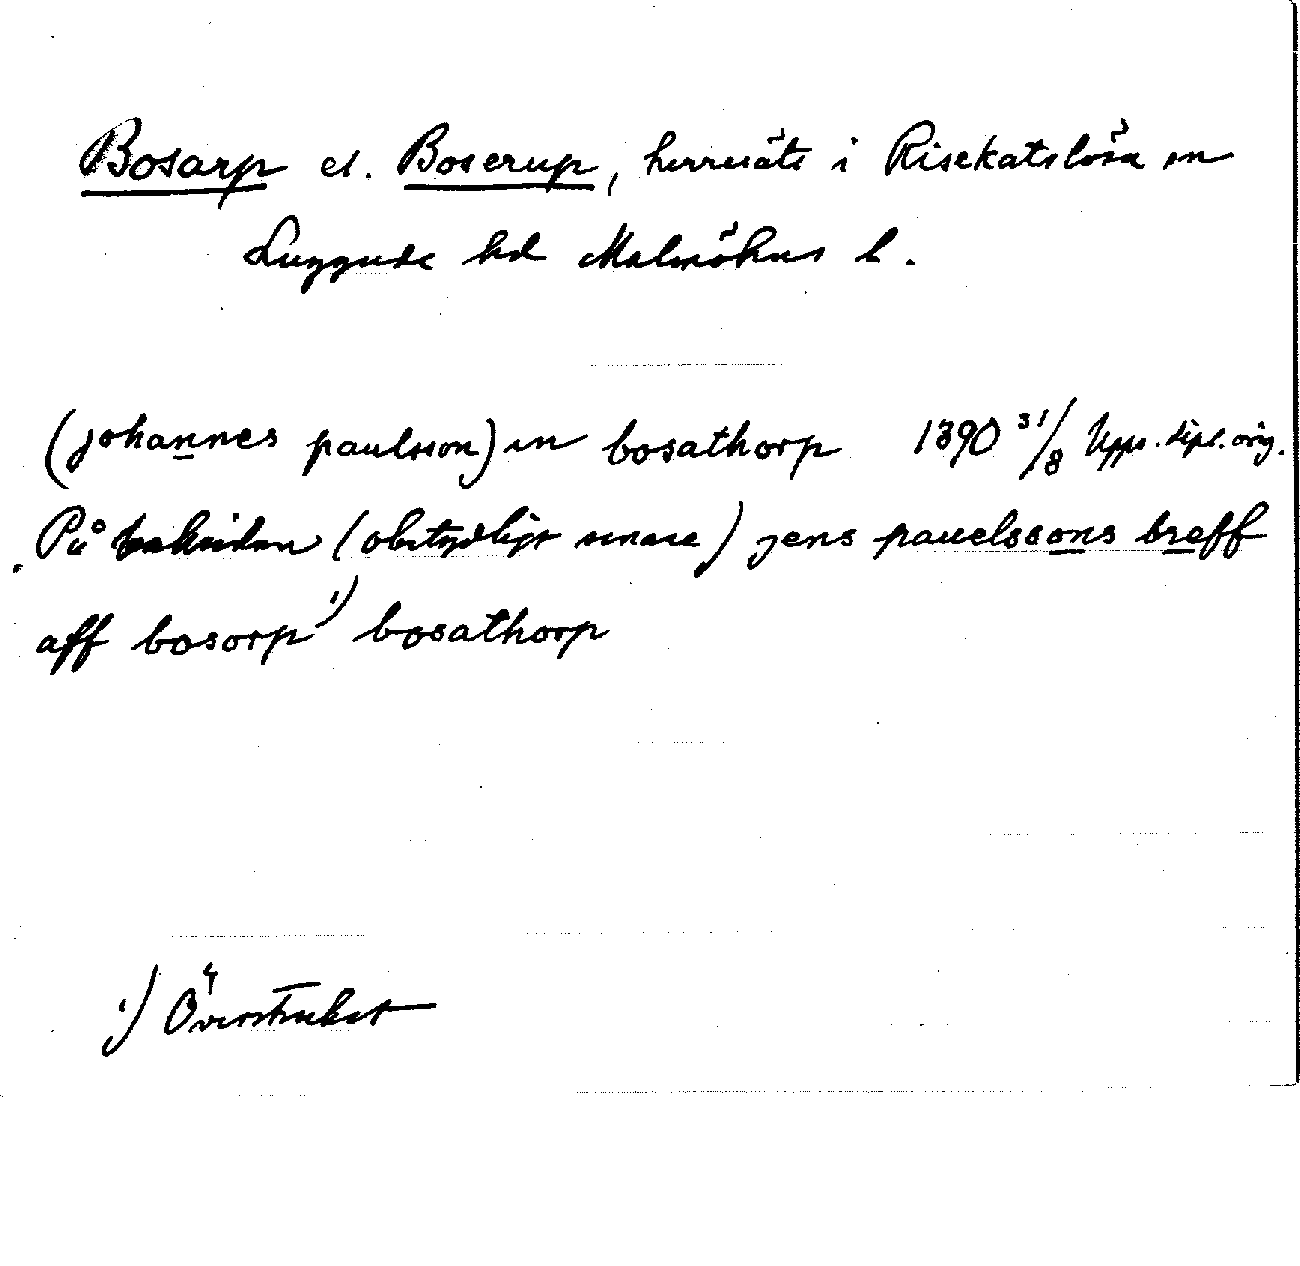 Bosarp el. Boserup, herresäte i Risekatslösa sn
Luggude hd Malmöhus l.
(johannes paulsson) in bosathorp 1390 31/8 Upps. dipl. orig.
På baksidan (obetydligt senare) jens pauelssons breff
aff bosorp 1) bosathorp
1) Överstruket